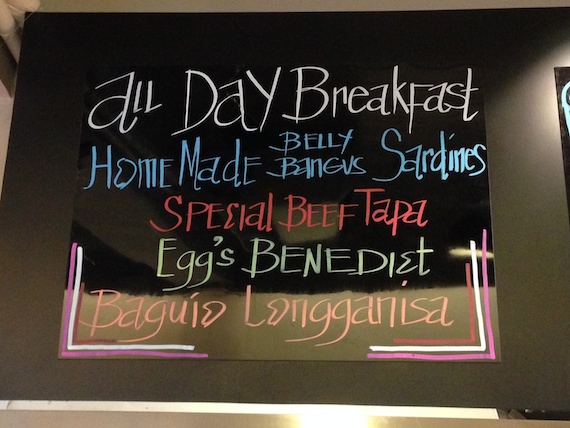 All Day Breakfast
HomeMade Belly Bangus Sardines
Special Beef Tapa
Egg's BENEDIct
Baguio Longganisa